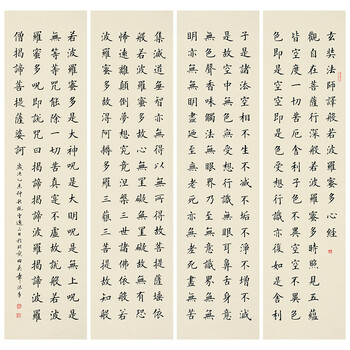 玄奘法師譯般若波羅蜜多心經
觀自在菩薩行深般若波羅蜜多時照見五蘊
皆空度一切苦厄舍利子色不異空空不異色
色即是空空即是色受想行識亦復如是舍利
子是諸法空相不生不滅不垢不淨不增不減
是故空中無色無受想行識無眼耳鼻舌身意
無色聲香味觸法無眼界乃至無意識界無無
明亦無無明盡乃至無老死亦無老死盡無苦
集滅道無智亦無得以無所得故菩提薩埵依
般若波羅蜜多故心無罣礙無罣礙故無有恐
怖遠離顛倒夢想究竟涅槃三世諸佛依般若
波羅蜜多故得阿耨多羅三藐三菩提故知般
若波羅蜜多是大神咒是大明咒是無上咒是
無等等咒能除一切苦真實不虛故說般若波
羅蜜多咒即說咒曰揭諦揭諦波羅揭諦波羅
僧揭諦菩提薩婆訶 歲次乙未仲秋